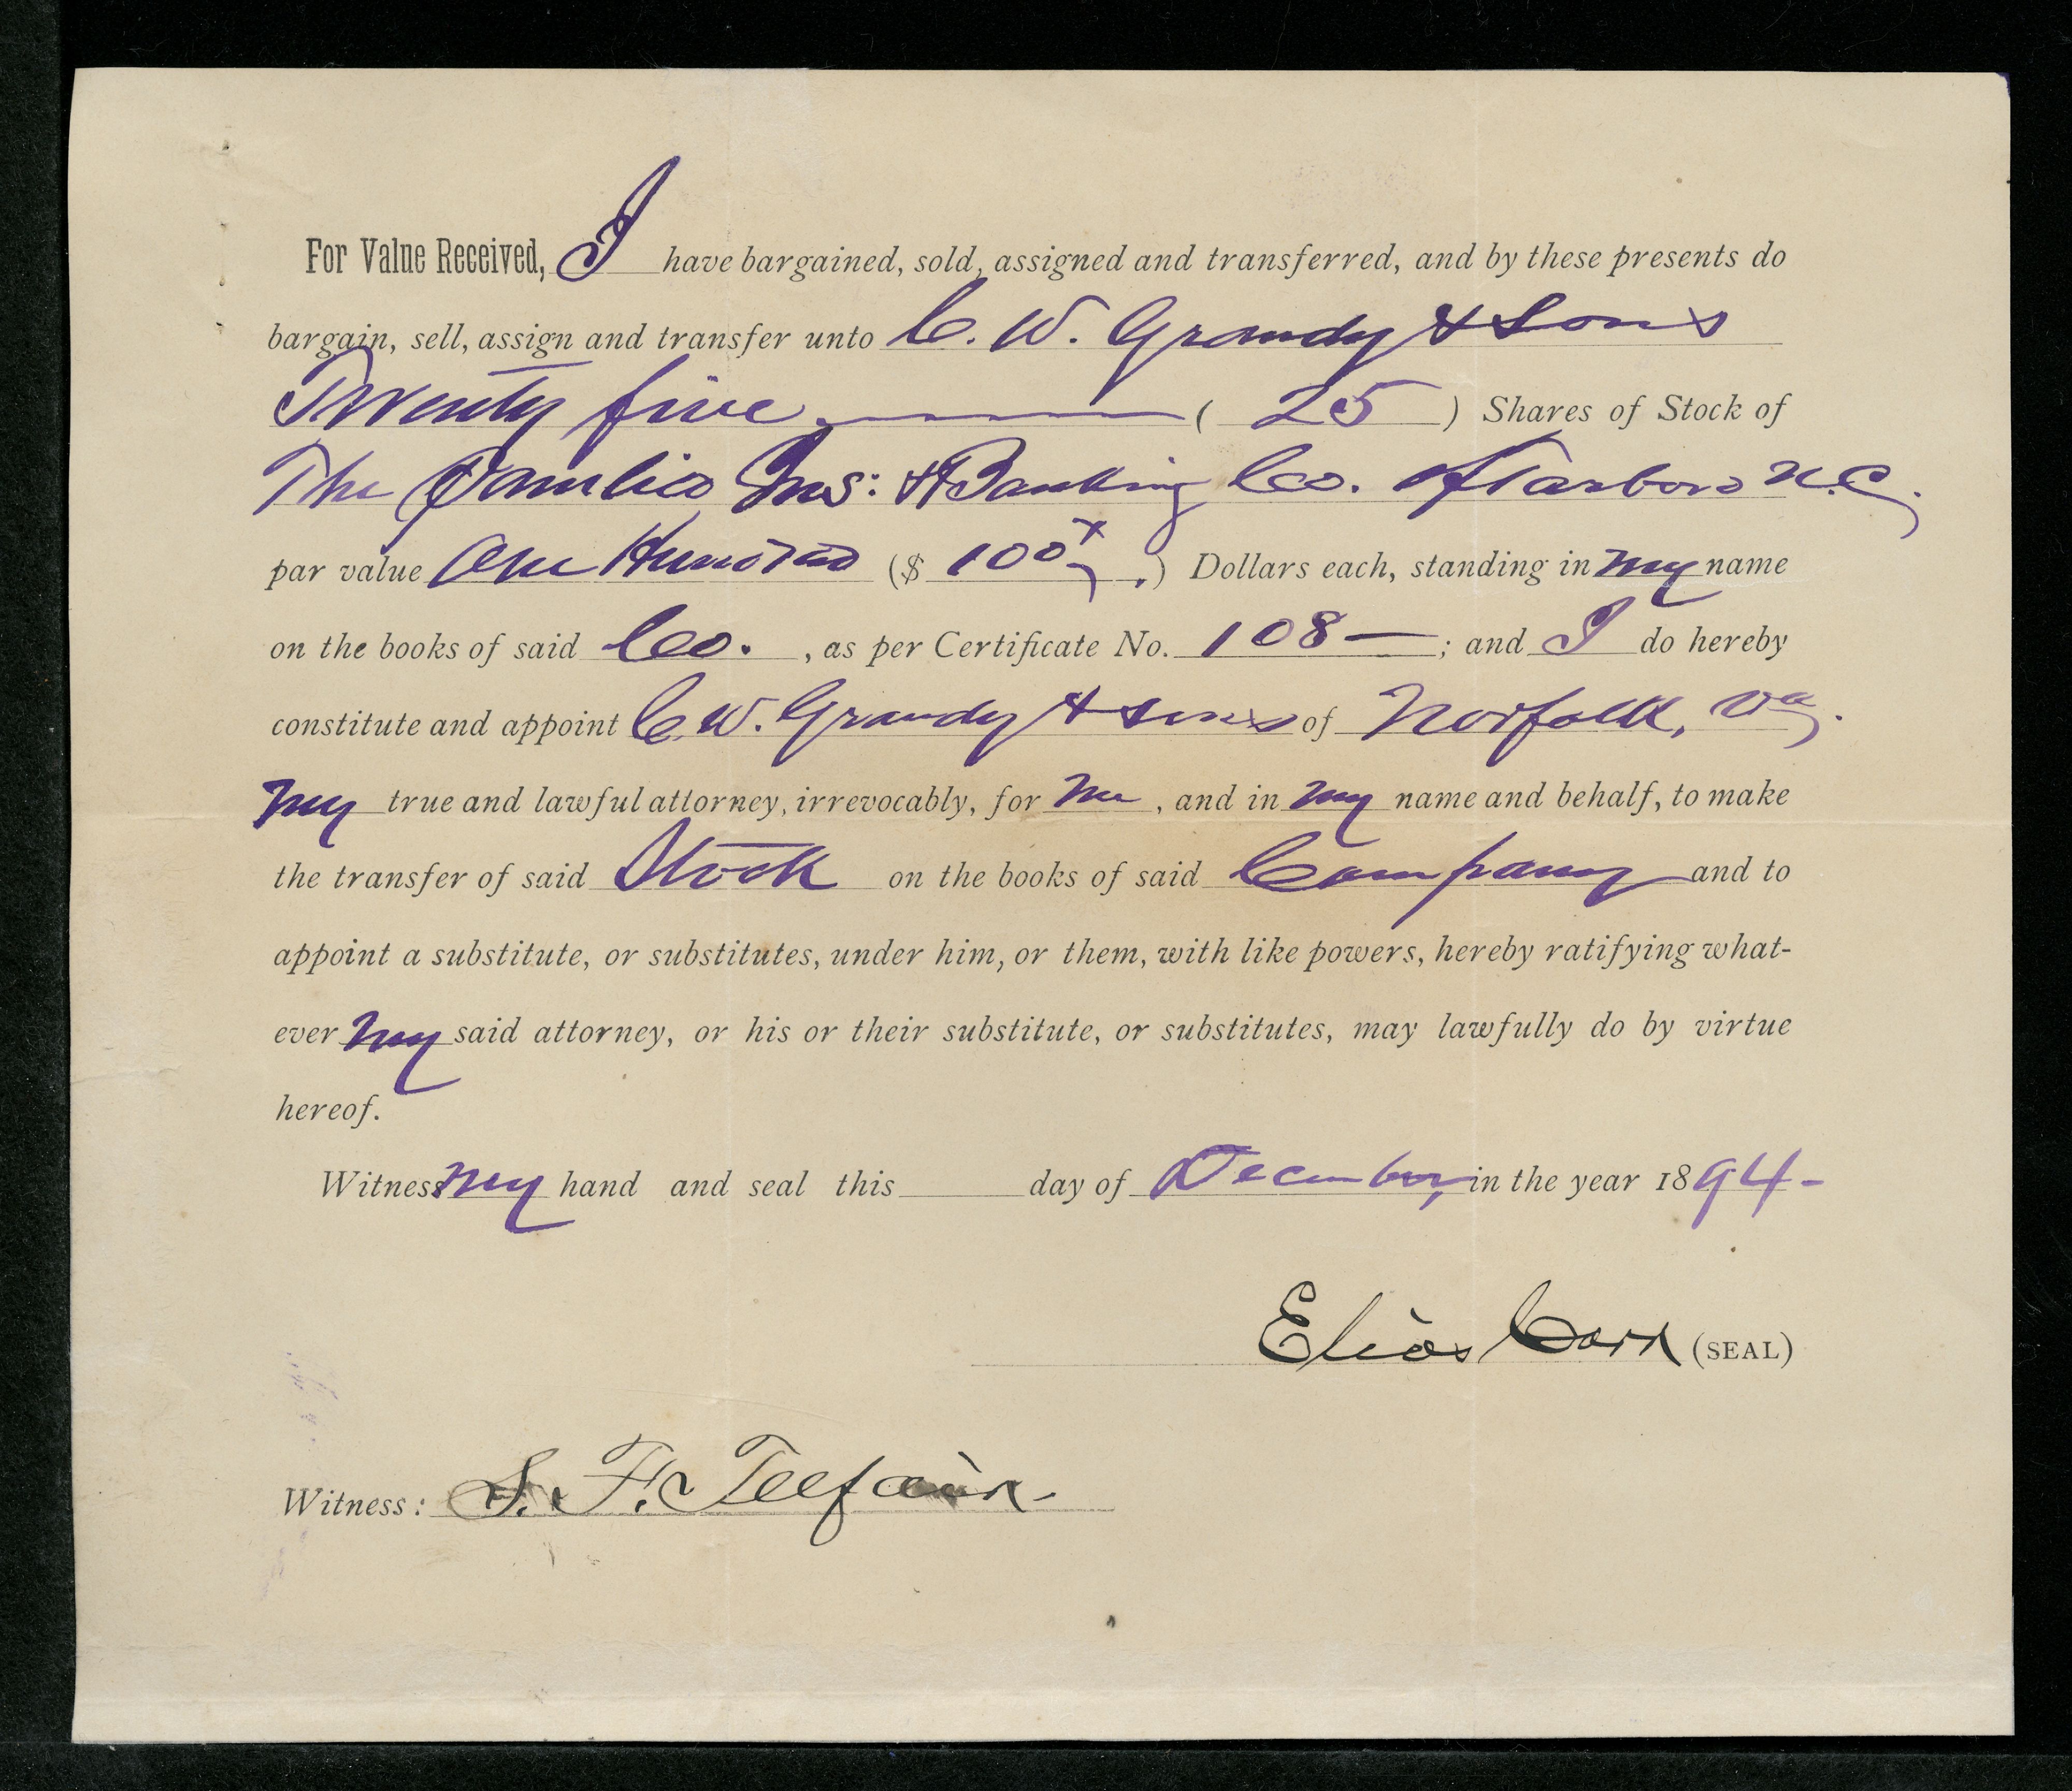 For Value Received, I have bargained, sold, assigned and transferred, and by these presents do
bargain, sell, assign and transfer unto C. W. Grandy & Sons
Twenty five ( 25 ) Shares of Stock of
The Pamlico Ins: & Banking Co. of Tarboro N.C.
par value One Hundred ($ 100 .) Dollars each, standing in my name
on the books of said Co. , as per Certificate No. 108 — ; and I do hereby
constitute and appoint C. W. Grandy & Sons of Norfolk, Va.
my true and lawful attorney, irrevocably, for me , and in my name and behalf, to make
the transfer of said Stock on the books of said Company and to
appoint a substitute, or substitutes, under him, or them, with like powers, hereby ratifying what-
ever my said attorney, or his or their substitute, or substitutes, may lawfully do by virtue
hereof.
Witness my hand and seal this day of December, in the year 1894-
Elias Carr (SEAL)
Witness: S. F. Telfair